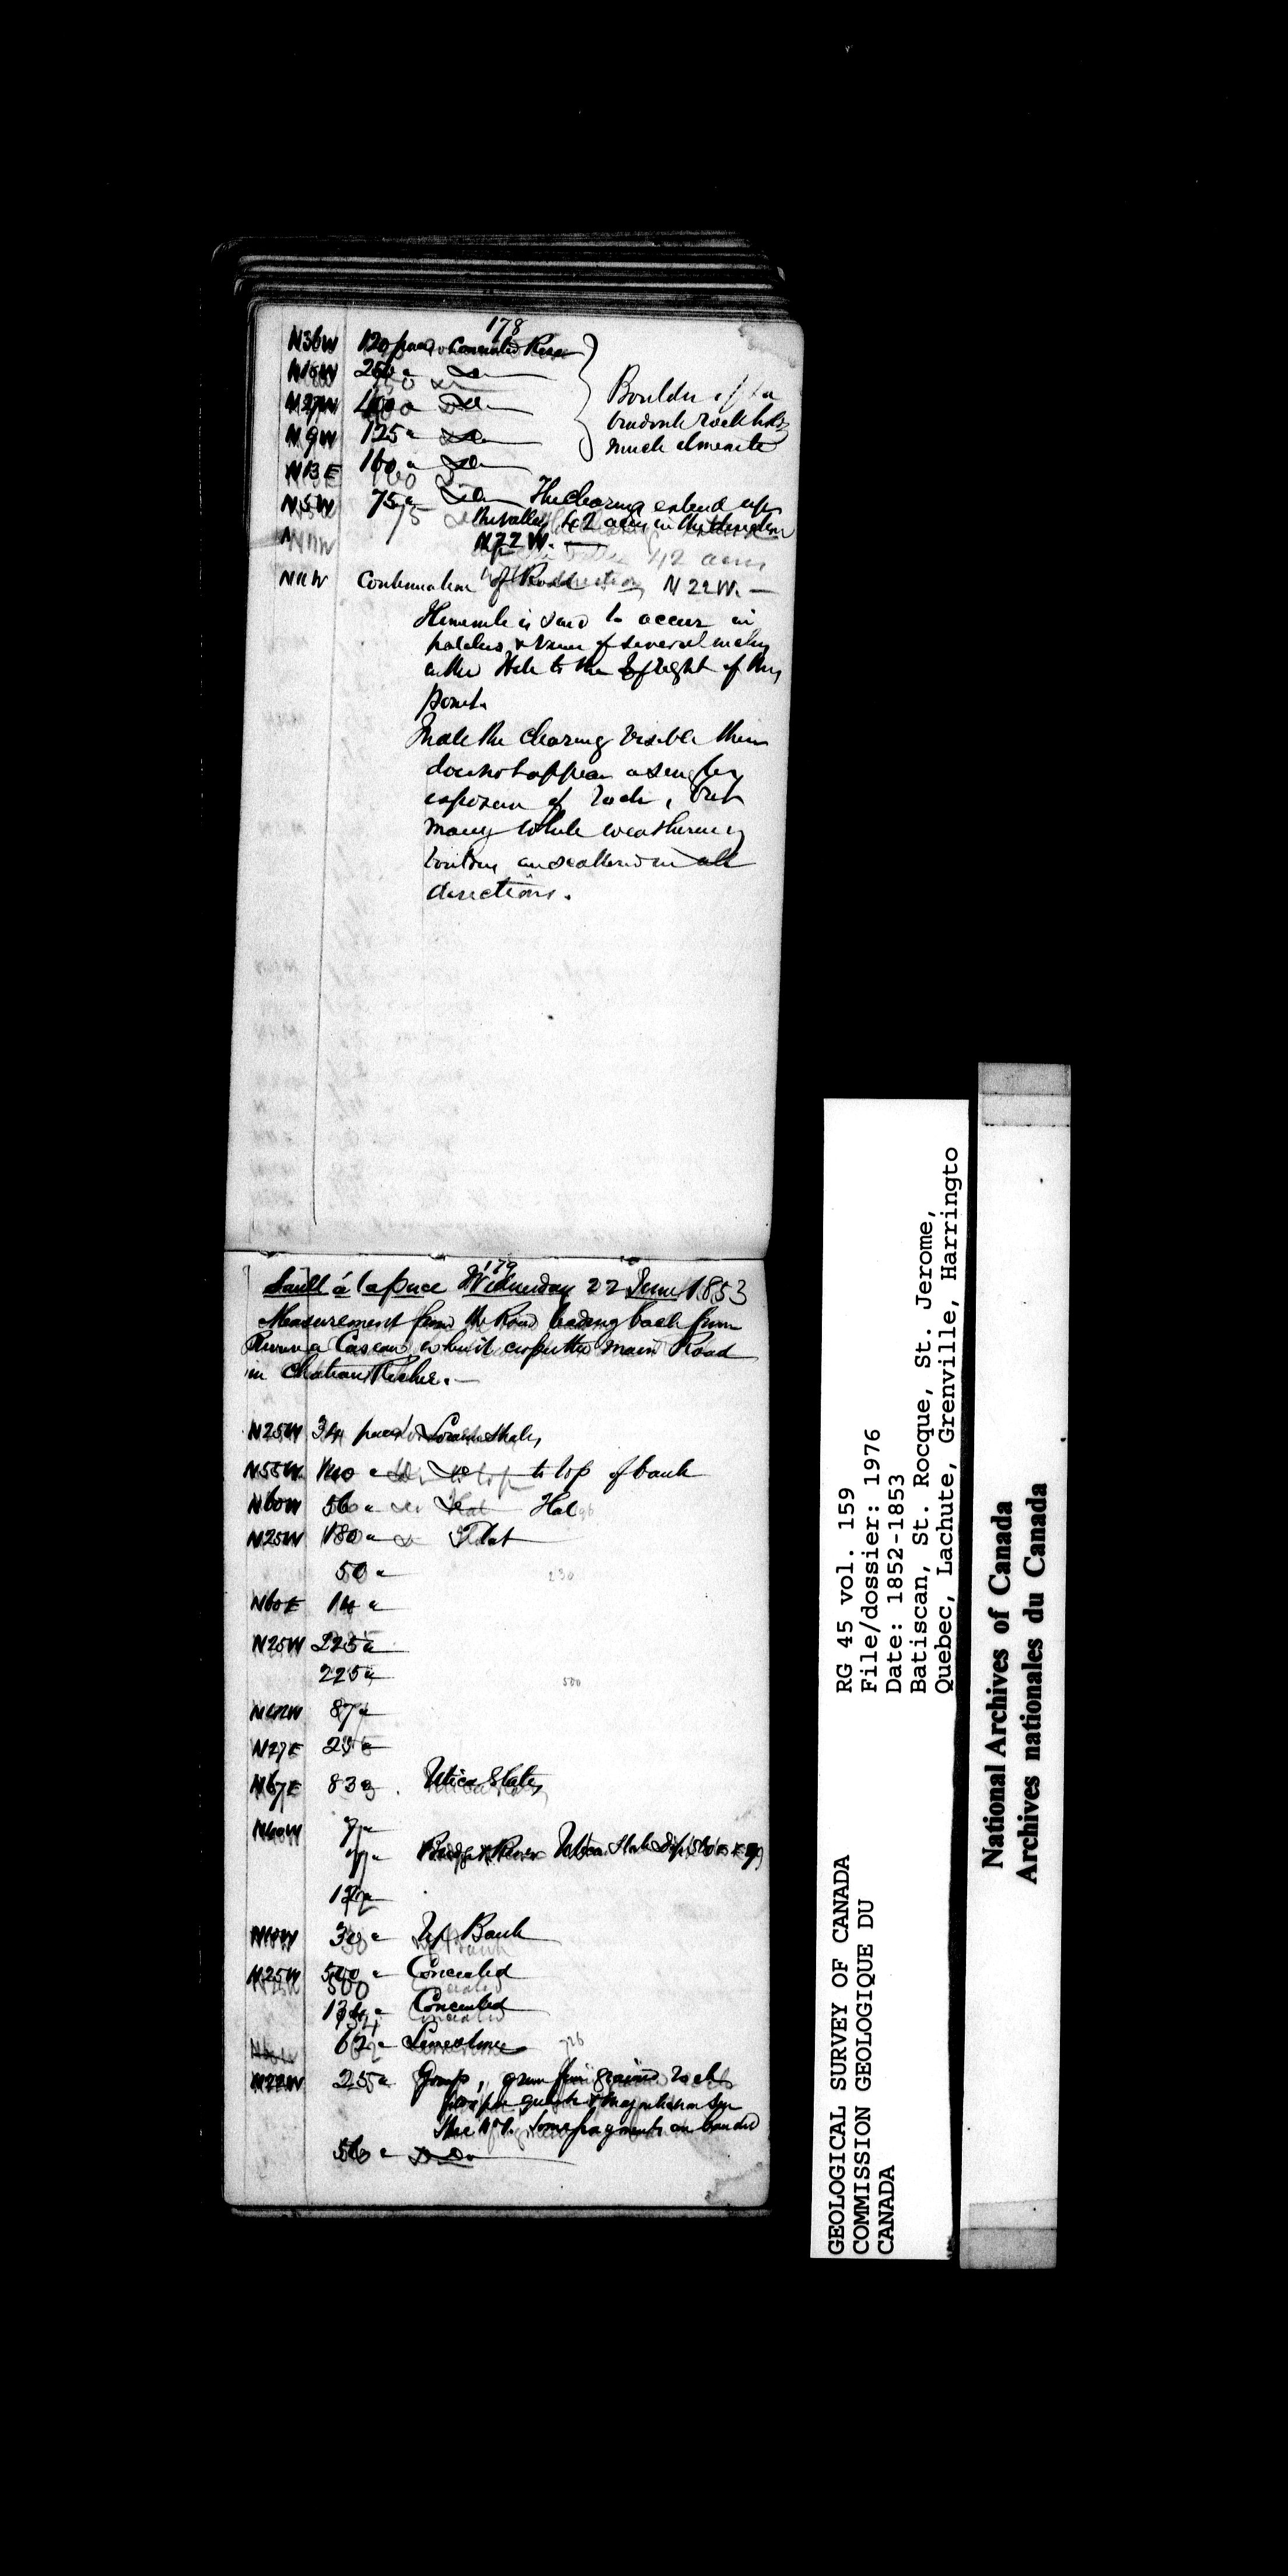 178
N36W 120 paces Concealed River
N15W 250 " Do
N27W 400 " Do
N9W 125 " Do
N13E 160 " Do
Boulder of
rock holds
much ilmenite
N5W 75 " Do The clearing extend up
the valley 42 acres in the direction
N22W. —
N11W Continuation of Road N22W. —
is said to occur in
patches & veins of several inches
in the to the right of this
point
the clearing visible there
does not appear a single
exposure of rock, but
many white weathering
boulders are scattered in all
directions.
179
Sault à la puce Wednesday 22 June 1853
Measurement from the Road leading back from
Riviere a where it crosses the main Road
in Chateau Richer. —
N25W 34 paces Loraine shales
N55W 140 " Do to top of bank
N60W 56 "
N25W 180 " Flat
50 "
230
N60E 14 "
N25W 225 "
225 "
500
87 "
N27E
N67E 83 " Utica Slates
N40W
Bridge & River Utica Slate dip
N10W 30 " Up Bank
N25W 500 " Concealed
134 " Concealed
62 " Limestone
N22W 25 " Gneiss, green fine grained rock
quartz &
Some fragments are banded
56 " Do Do
RG 45 vol. 159
File/dossier: 1976
Date: 1852-1853
Batiscan, St. Rocque, St. Jerome,
Quebec, Lachute, Grenville, Harringto
GEOLOGICAL SURVEY OF CANADA
COMMISSION GEOLOGIQUE DU
CANADA
National Archives of Canada
Archives nationales du Canada